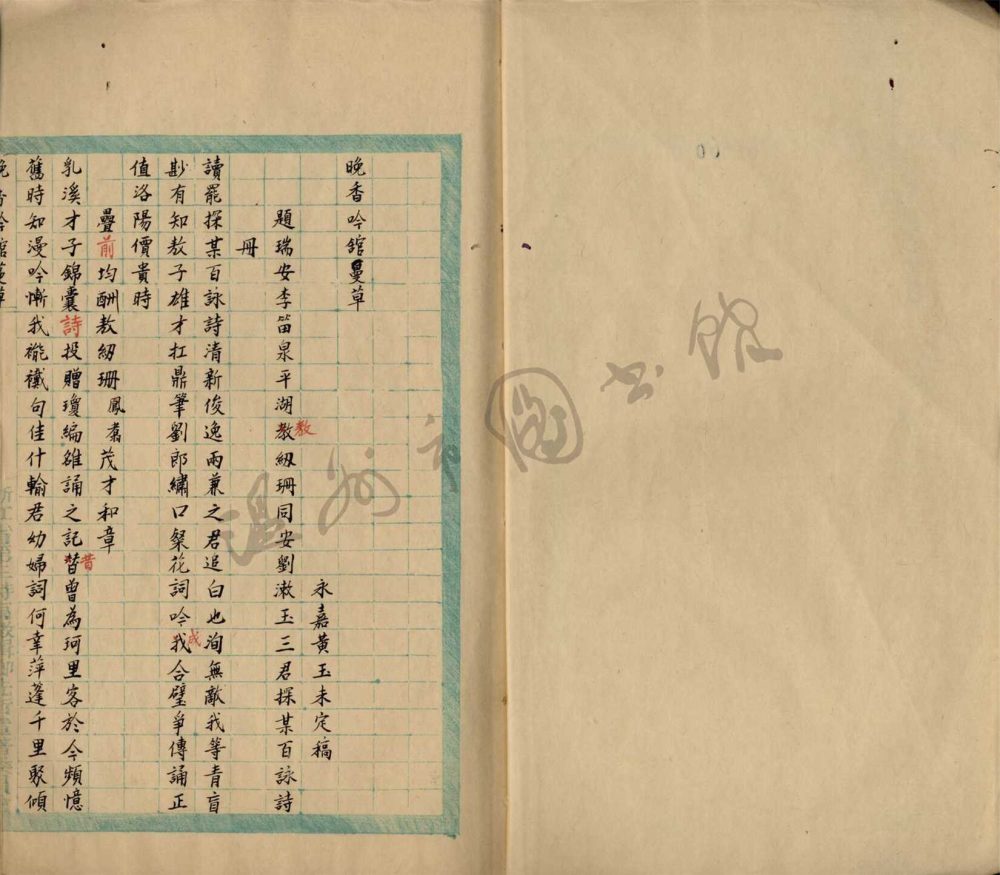 晚香吟館曼草
永嘉黃玉未定稿
題瑞安李笛泉平湖教級珊同安劉漱玉三君探某百詠詩
教
冊
讀罷探某百詠詩清新俊逸兩兼之君追白也洵無敵我等青盲
尠有知教子雄才扛鼎筆劉郎繡口粲花詞吟我合璧爭傳誦正
成
值洛陽價貴時
疊前均酬教紉珊鳳翥茂才和章
乳溪才子錦囊詩投贈瓊編雒誦之記替曾為珂里客於今頻憶
昔
舊時知漫吟慚我褦襶句佳什輸君幼婦詞何幸萍蓬千里聚傾
晚香吟館蔓草
溫州市圖書館